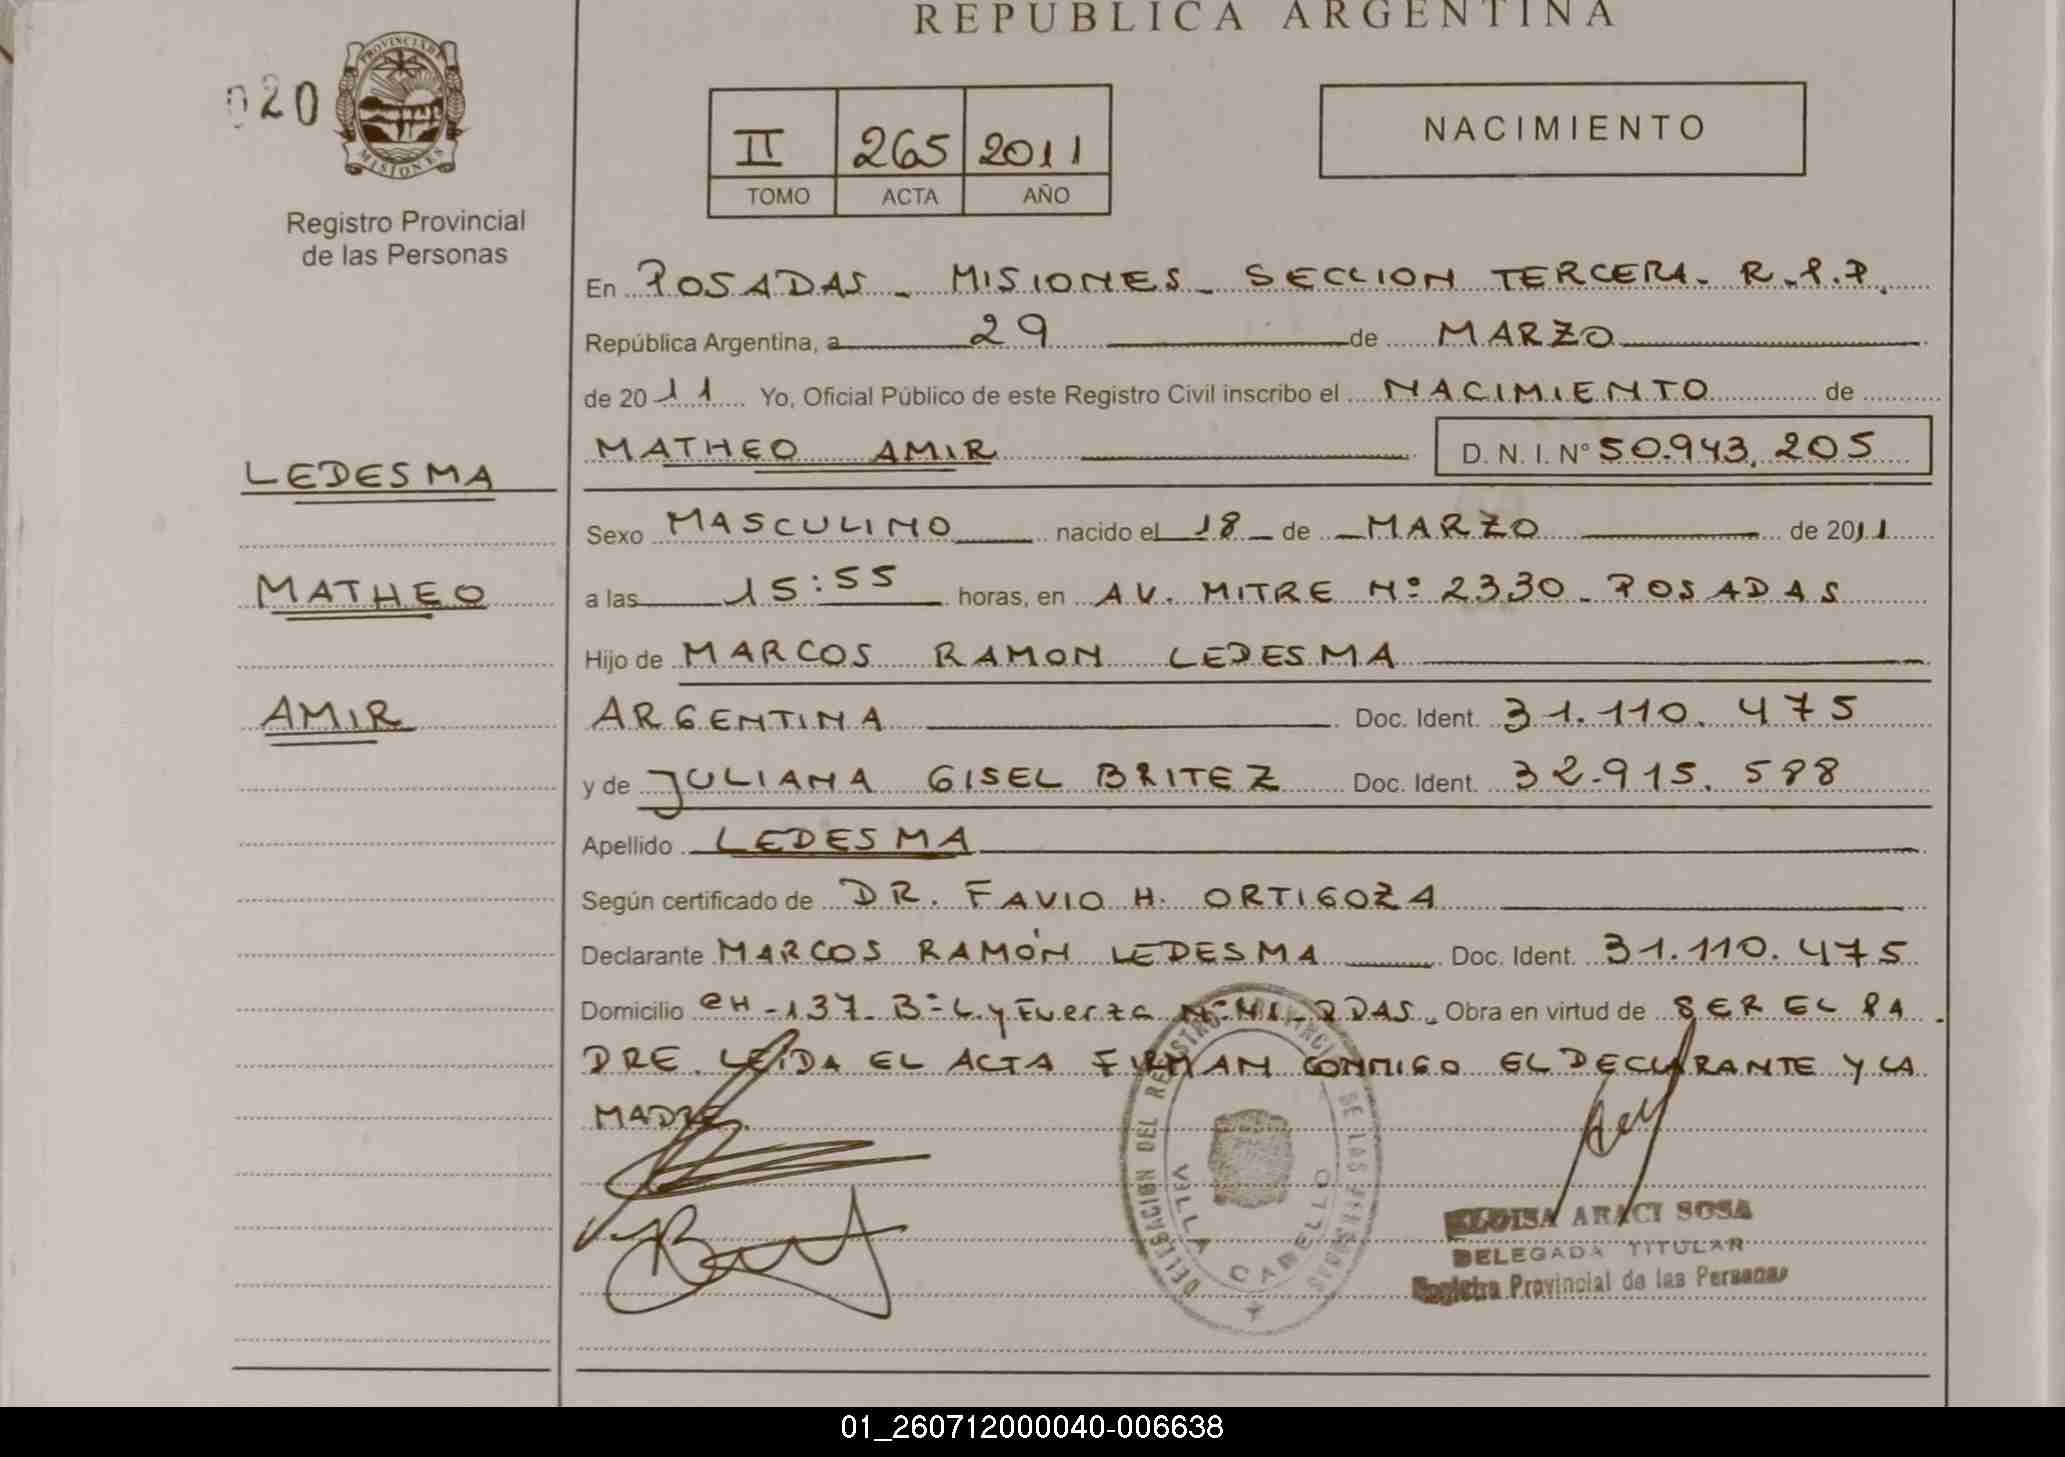 REPUBLICA ARGENTINA
020
PROVINCIA DE
MISIONES
Registro Provincial
de las Personas
II 265 2011
TOMO ACTA AÑO
NACIMIENTO
En POSADAS - MISIONES - SECCION TERCERA - R.P.P.
República Argentina, a 29 de MARZO
de 2011 Yo, Oficial Público de este Registro Civil inscribo el NACIMIENTO de
MATHEO AMIR D. N. I. N° 50.943.205
LEDESMA
MATHEO
AMIR
Sexo MASCULINO nacido el 18 de MARZO de 2011
a las 15:55 horas, en AV. MITRE Nº 2330 - POSADAS
Hijo de MARCOS RAMON LEDESMA
ARGENTINA Doc. Ident. 31.110.475
y de JULIANA GISEL BRITEZ Doc. Ident. 32.915.588
Apellido LEDESMA
Según certificado de DR. FAVIO H. ORTIGOZA
Declarante MARCOS RAMÓN LEDESMA Doc. Ident. 31.110.475
Domicilio CH-137- Bº L. y Fuerza Obra en virtud de SER EL PA
DRE. LEIDA EL ACTA FIRMAN CONMIGO EL DECLARANTE Y LA
MADRE.
DELEGACION DEL REGISTRO PROVINCIAL DE LAS PERSONAS
VILLA CABELLO
ELOISA ARACI SOSA
DELEGADA TITULAR
Registro Provincial de las Personas
01_260712000040-006638